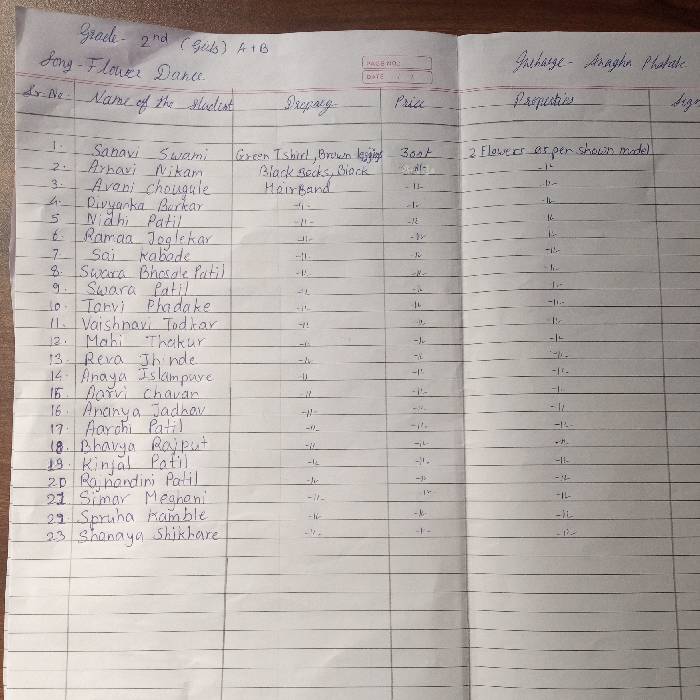 Grade - 2nd (Girls) A+B
Song - Flower Dance Incharge - Anagha Phatak
PAGE NO.:
DATE: / /
Sr. No. Name of the student Price Properties Sign
1. Sanavi Swami Green Tshirt, Brown leggings 300+ 2 Flowers as per shown model
2. Arnavi Nikam Black Socks, Black -11-  -11-
3. Avani Chougule HairBand -11- -11-
4. Divyanka Burkar -11- -11- -11-
5 Nidhi Patil -11- -11- -11-
6. Ramaa Joglekar -11- -11- -11-
7. Sai Kabade -11- -11- -11-
8. Swara Bhosale Patil -11- -11- -11-
9. Swara Patil -11- -11- -11-
10. Tanvi Phadake -11- -11- -11-
11. Vaishnavi Todkar -11- -11- -11-
12. Mahi Thakur -11- -11- -11-
13. Reva Jhinde -11- -11- -11-
14. Anaya Islampure -11- -11- -11-
15. Aarvi Chavan -11- -11- -11-
16. Ananya Jadhav -11- -11- -11-
17. Aarohi Patil -11- -11- -11-
18. Bhavya Rajput -11- -11- -11-
19. Kinjal Patil -11- -11- -11-
20 Rajnandini Patil -11- -11- -11-
21 Simar Meghani -11- -11- -11-
22 Spruha Kamble -11- -11- -11-
23 Shanaya Shikhare -11- -11- -11-